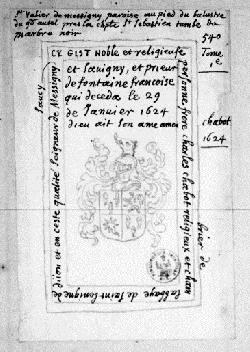 St Valier de messigny paroisse au pied du balustre
du gd autel pres la chple St Sebastien tombe
marbre noir
540
Tome
1e
CY GIST Noble et religieuse
personne frere charles chabot religieux et cham
brier de
labbaye de Saint benigne de
dijon et en ceste qualité seigneur de Messigny
saucy
et Savigny, et prieur
de fontaine francoise
qui deceda le 29
de Januier 1624
dieu ait son ame amen
chabot
1624